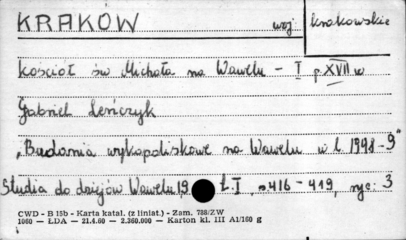 KRAKÓW woj krakowskie
Kościół św Michała na Wawelu - I p XVII w
Gabriel Leńczyk
„Badania wykopaliskowe na Wawelu w l. 1948-9"
Studia do dziejów Wawelu, 19 t. I, s 416 - 419, ryc: 3
CWD - B 15b - Karta katal. (z liniat.) - Zam. 788/ZW
1060 — LDA — 21.4.60 — 2.360.000 — Karton kl. III A1/160 g